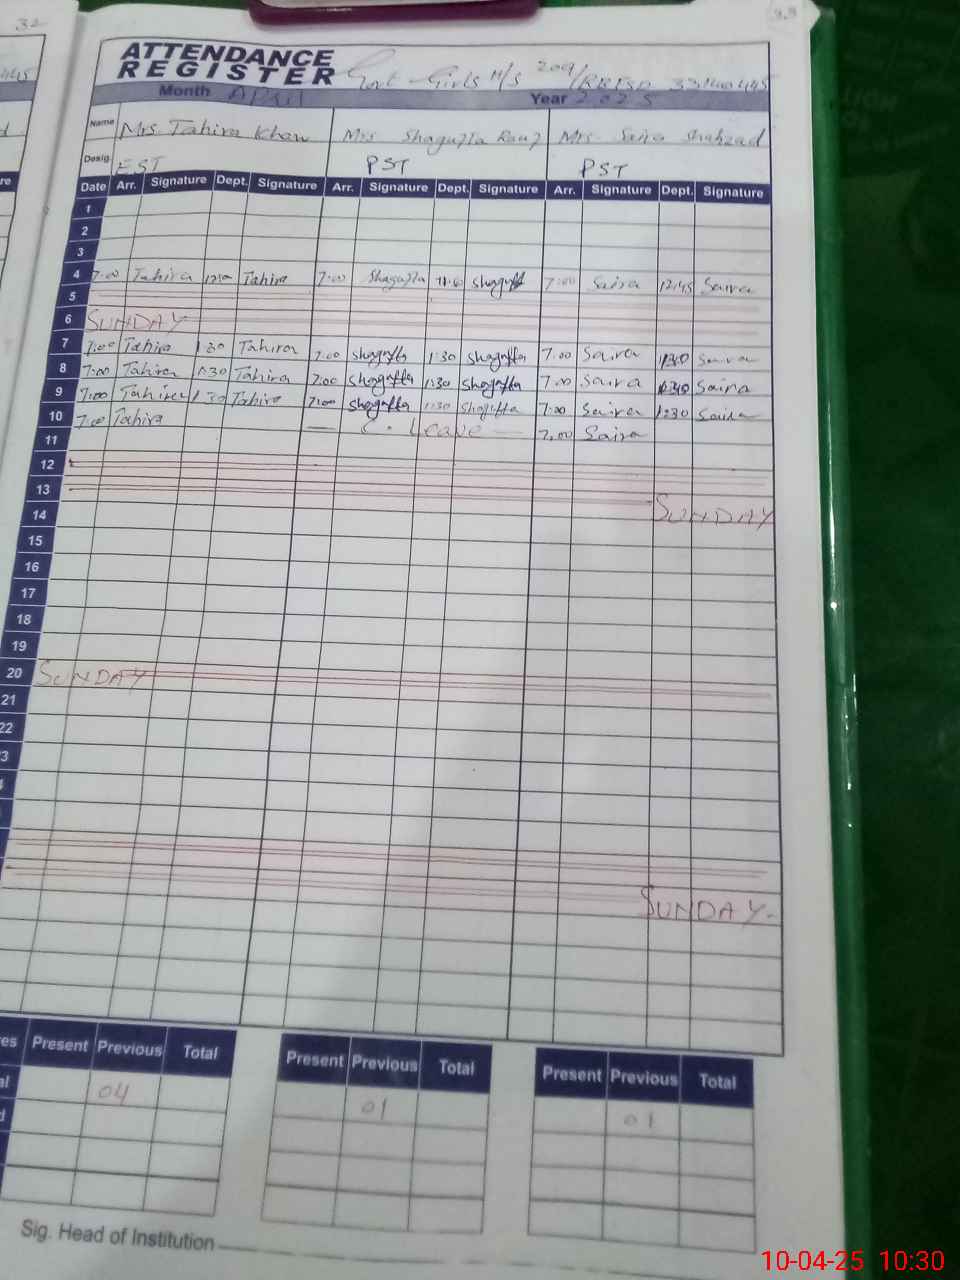 32
33
ATTENDANCE
REGISTER Govt Girls M/S 209/RBFSD 33140445
Month April Year 2025
Name Mrs. Tahira Khan Mrs Shagufta Rauf Mrs. Saira Shahzad
Desig. EST PST PST
Date Arr. Signature Dept. Signature Arr. Signature Dept. Signature Arr. Signature Dept. Signature
1
2
3
4 7:00 Tahira Tahira 7:00 Shagufta Shagufta 7:00 Saira 12:45 Saira
5
6 SUNDAY
7 7:00 Tahira 1:30 Tahira 7:00 Shagufta 1:30 Shagufta 7:00 Saira Saira
8 7:00 Tahira 1:30 Tahira 7:00 Shagufta 1:30 Shagufta 7:00 Saira Saira
9 7:00 Tahira 1:30 Tahira 7:00 Shagufta 1:30 Shagufta 7:00 Saira 1:30 Saira
10 7:00 Tahira — C. Leave — 7:00 Saira
11
12
13 SUNDAY
14
15
16
17
18
19
20 SUNDAY
21
22
SUNDAY
Present Previous Total Present Previous Total Present Previous Total
04 01 01
Sig. Head of Institution
10-04-25 10:30